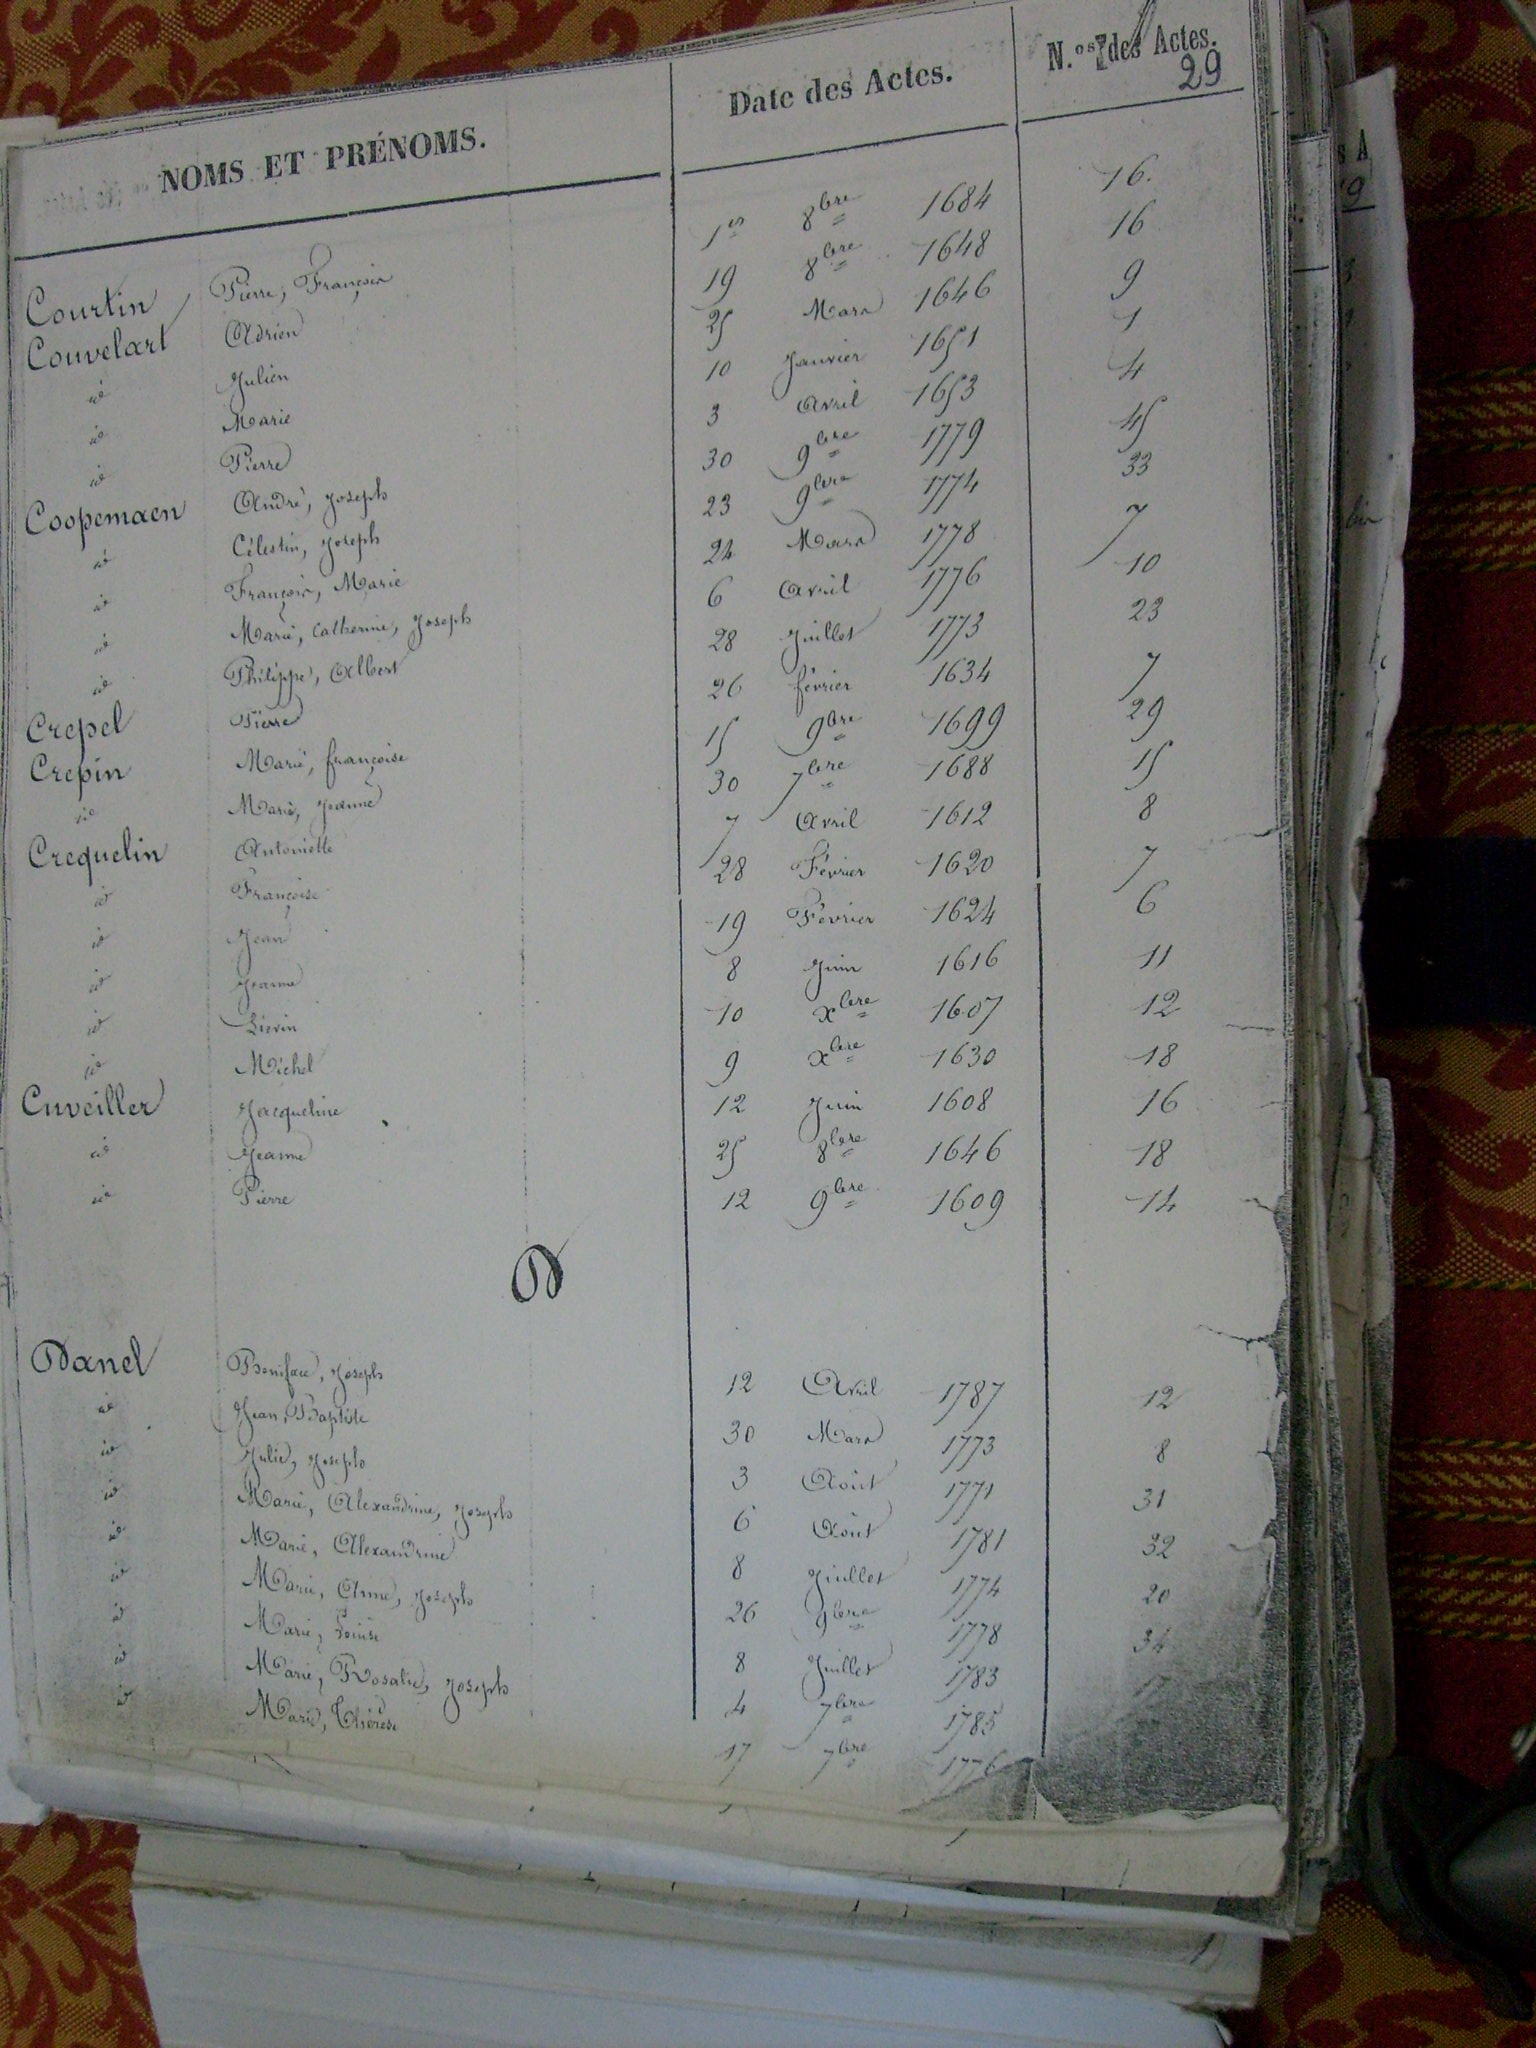 NOMS ET PRÉNOMS. Date des Actes. N.os des Actes.
29
Courtin Pierre, François 1er 8bre 1684 16.
Couvelart Adrien 19 8bre 1648 16
id Julien 25 Mars 1646 9
id Marie 10 Janvier 1651 1
id Pierre 3 Avril 1653 4
Coopemaen André, Joseph 30 9bre 1779 45
id Célestin, Joseph 23 9bre 1774 33
id François, Marie 24 Mars 1778 7
id Marie, Catherine, Joseph 6 Avril 1776 10
id Philippe, Albert 28 Juillet 1773 23
Crepel Pierre 26 février 1634 7
Crepin Marie, françoise 15 9bre 1699 29
id Marie, Jeanne 30 7bre 1688 15
Crequelin Antoinette 7 Avril 1612 8
id Françoise 28 Février 1620 7
id Jean 19 Février 1624 6
id Jeanne 8 Juin 1616 11
id Lievin 10 xbre 1607 12
id Michel 9 xbre 1630 18
Cuveiller Jacqueline 12 Juin 1608 16
id Jeanne 25 8bre 1646 18
id Pierre 12 9bre 1609 14
D
Danel Boniface, Joseph 12 Avril 1787 12
id Jean, Baptiste 30 Mars 1773 8
id Julie, Joseph 3 Août 1771 31
id Marie, Alexandrine, Joseph 6 Août 1781 32
id Marie, Alexandrine 8 Juillet 1774 20
id Marie, Anne, Joseph 26 9bre 1778 34
id Marie, Louise 8 Juillet 1783 17
id Marie, Rosalie, Joseph 4 7bre 1785
id Marie, Thérèse 17 7bre 1776